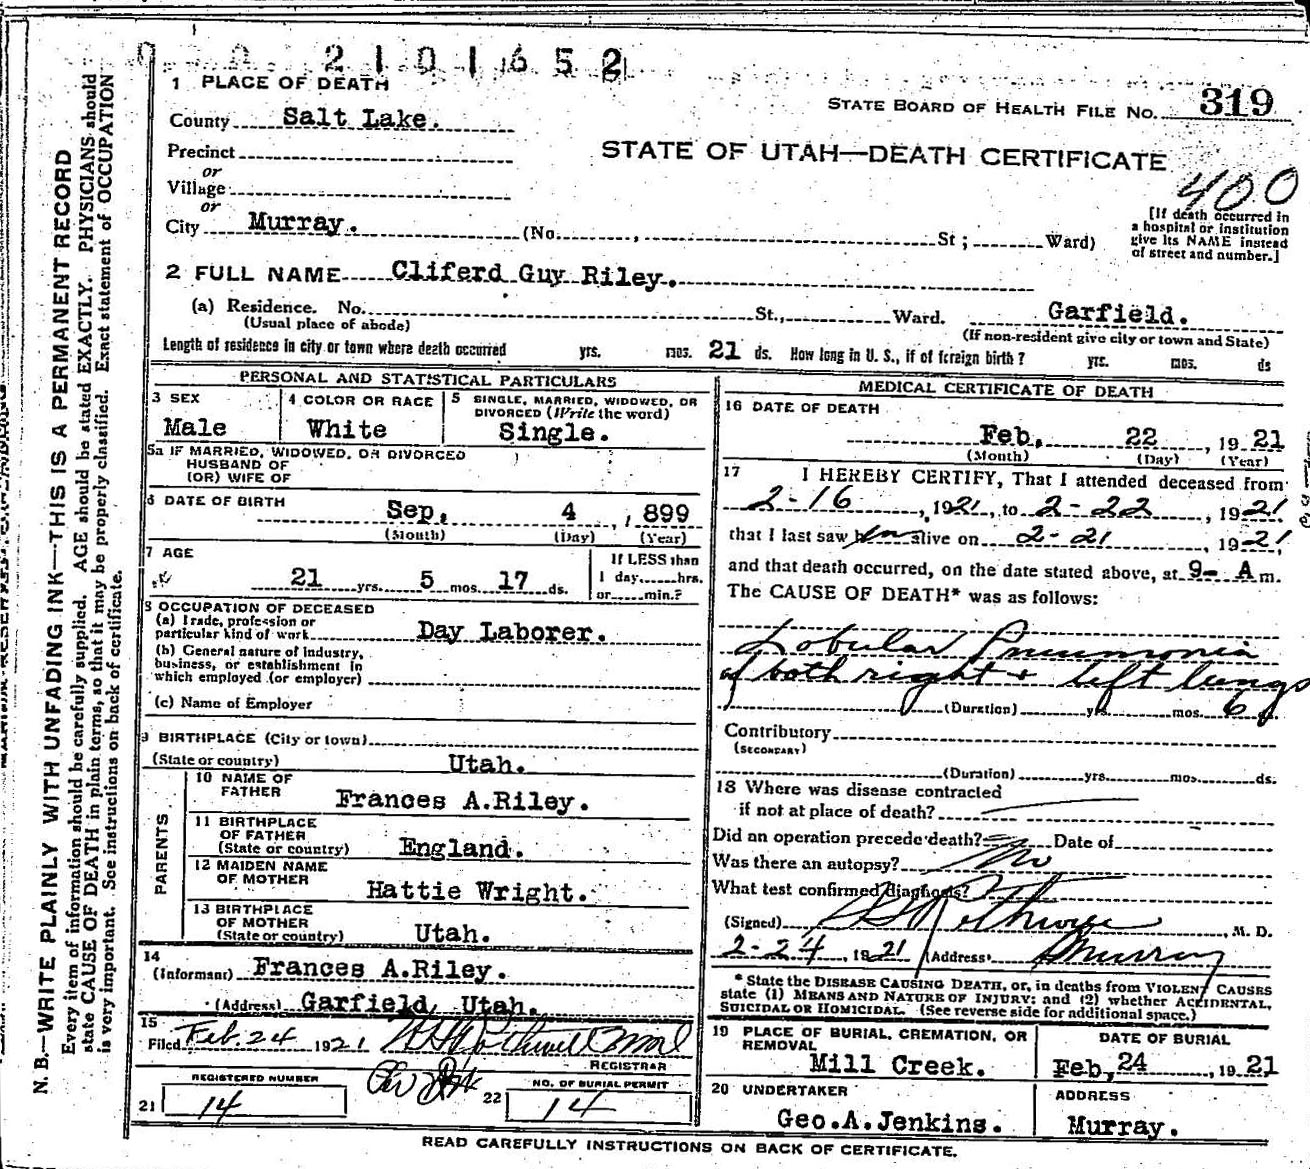 2101652
1 PLACE OF DEATH
STATE BOARD OF HEALTH FILE NO. 319
County Salt Lake.
Precinct
or
STATE OF UTAH—DEATH CERTIFICATE
400
Village
or
City Murray. (No. , St ; Ward)
[If death occurred in
a hospital or institution
give its NAME instead
of street and number.]
2 FULL NAME Cliferd Guy Riley.
(a) Residence. No. St., Ward. Garfield.
(Usual place of abode) (If non-resident give city or town and State)
Length of residence in city or town where death occurred yrs. mos. 21 ds. How long in U. S., if of foreign birth? yrs. mos. ds
PERSONAL AND STATISTICAL PARTICULARS
3 SEX
Male
4 COLOR OR RACE
White
5 SINGLE, MARRIED, WIDOWED, OR
DIVORCED (Write the word)
Single.
5a IF MARRIED, WIDOWED, OR DIVORCED
HUSBAND OF
(OR) WIFE OF
6 DATE OF BIRTH
Sep, 4 , 1899
(Month) (Day) (Year)
7 AGE
21 yrs. 5 mos. 17 ds.
If LESS than
1 day, hrs.
or min.?
8 OCCUPATION OF DECEASED
(a) Trade, profession or
particular kind of work Day Laborer.
(b) General nature of industry,
business, or establishment in
which employed (or employer)
(c) Name of Employer
9 BIRTHPLACE (City or town)
(State or country) Utah.
PARENTS
10 NAME OF
FATHER Frances A.Riley.
11 BIRTHPLACE
OF FATHER
(State or country) England.
12 MAIDEN NAME
OF MOTHER Hattie Wright.
13 BIRTHPLACE
OF MOTHER
(State or country) Utah.
14
(Informant) Frances A.Riley.
(Address) Garfield, Utah.
15
Filed Feb. 24 1921
REGISTRAR
REGISTERED NUMBER
21 14
NO. OF BURIAL PERMIT
22 14
MEDICAL CERTIFICATE OF DEATH
16 DATE OF DEATH
Feb, 22 , 1921
(Month) (Day) (Year)
17 I HEREBY CERTIFY, That I attended deceased from
2-16 , 1921, to 2-22 , 1921
that I last saw him alive on 2-21 , 1921,
and that death occurred, on the date stated above, at 9- A m.
The CAUSE OF DEATH* was as follows:
Lobular Pneumonia
of both right + left lungs
(Duration) yrs mos. 6 d.
Contributory
(SECONDARY)
(Duration) yrs. mos. ds.
18 Where was disease contracted
if not at place of death?
Did an operation precede death? Date of
Was there an autopsy? No
What test confirmed diagnosis?
(Signed) , M. D.
2-24, 1921 (Address Murray
* State the DISEASE CAUSING DEATH, or, in deaths from VIOLENT CAUSES
state (1) MEANS AND NATURE OF INJURY; and (2) whether ACCIDENTAL,
SUICIDAL OR HOMICIDAL. (See reverse side for additional space.)
19 PLACE OF BURIAL, CREMATION, OR
REMOVAL
Mill Creek.
DATE OF BURIAL
Feb, 24 , 1921
20 UNDERTAKER
Geo.A.Jenkins.
ADDRESS
Murray.
READ CAREFULLY INSTRUCTIONS ON BACK OF CERTIFICATE.
N. B.—WRITE PLAINLY WITH UNFADING INK—THIS IS A PERMANENT RECORD
Every item of information should be carefully supplied. AGE should be stated EXACTLY. PHYSICIANS should
state CAUSE OF DEATH in plain terms, so that it may be properly classified. Exact statement of OCCUPATION
is very important. See instructions on back of certificate.